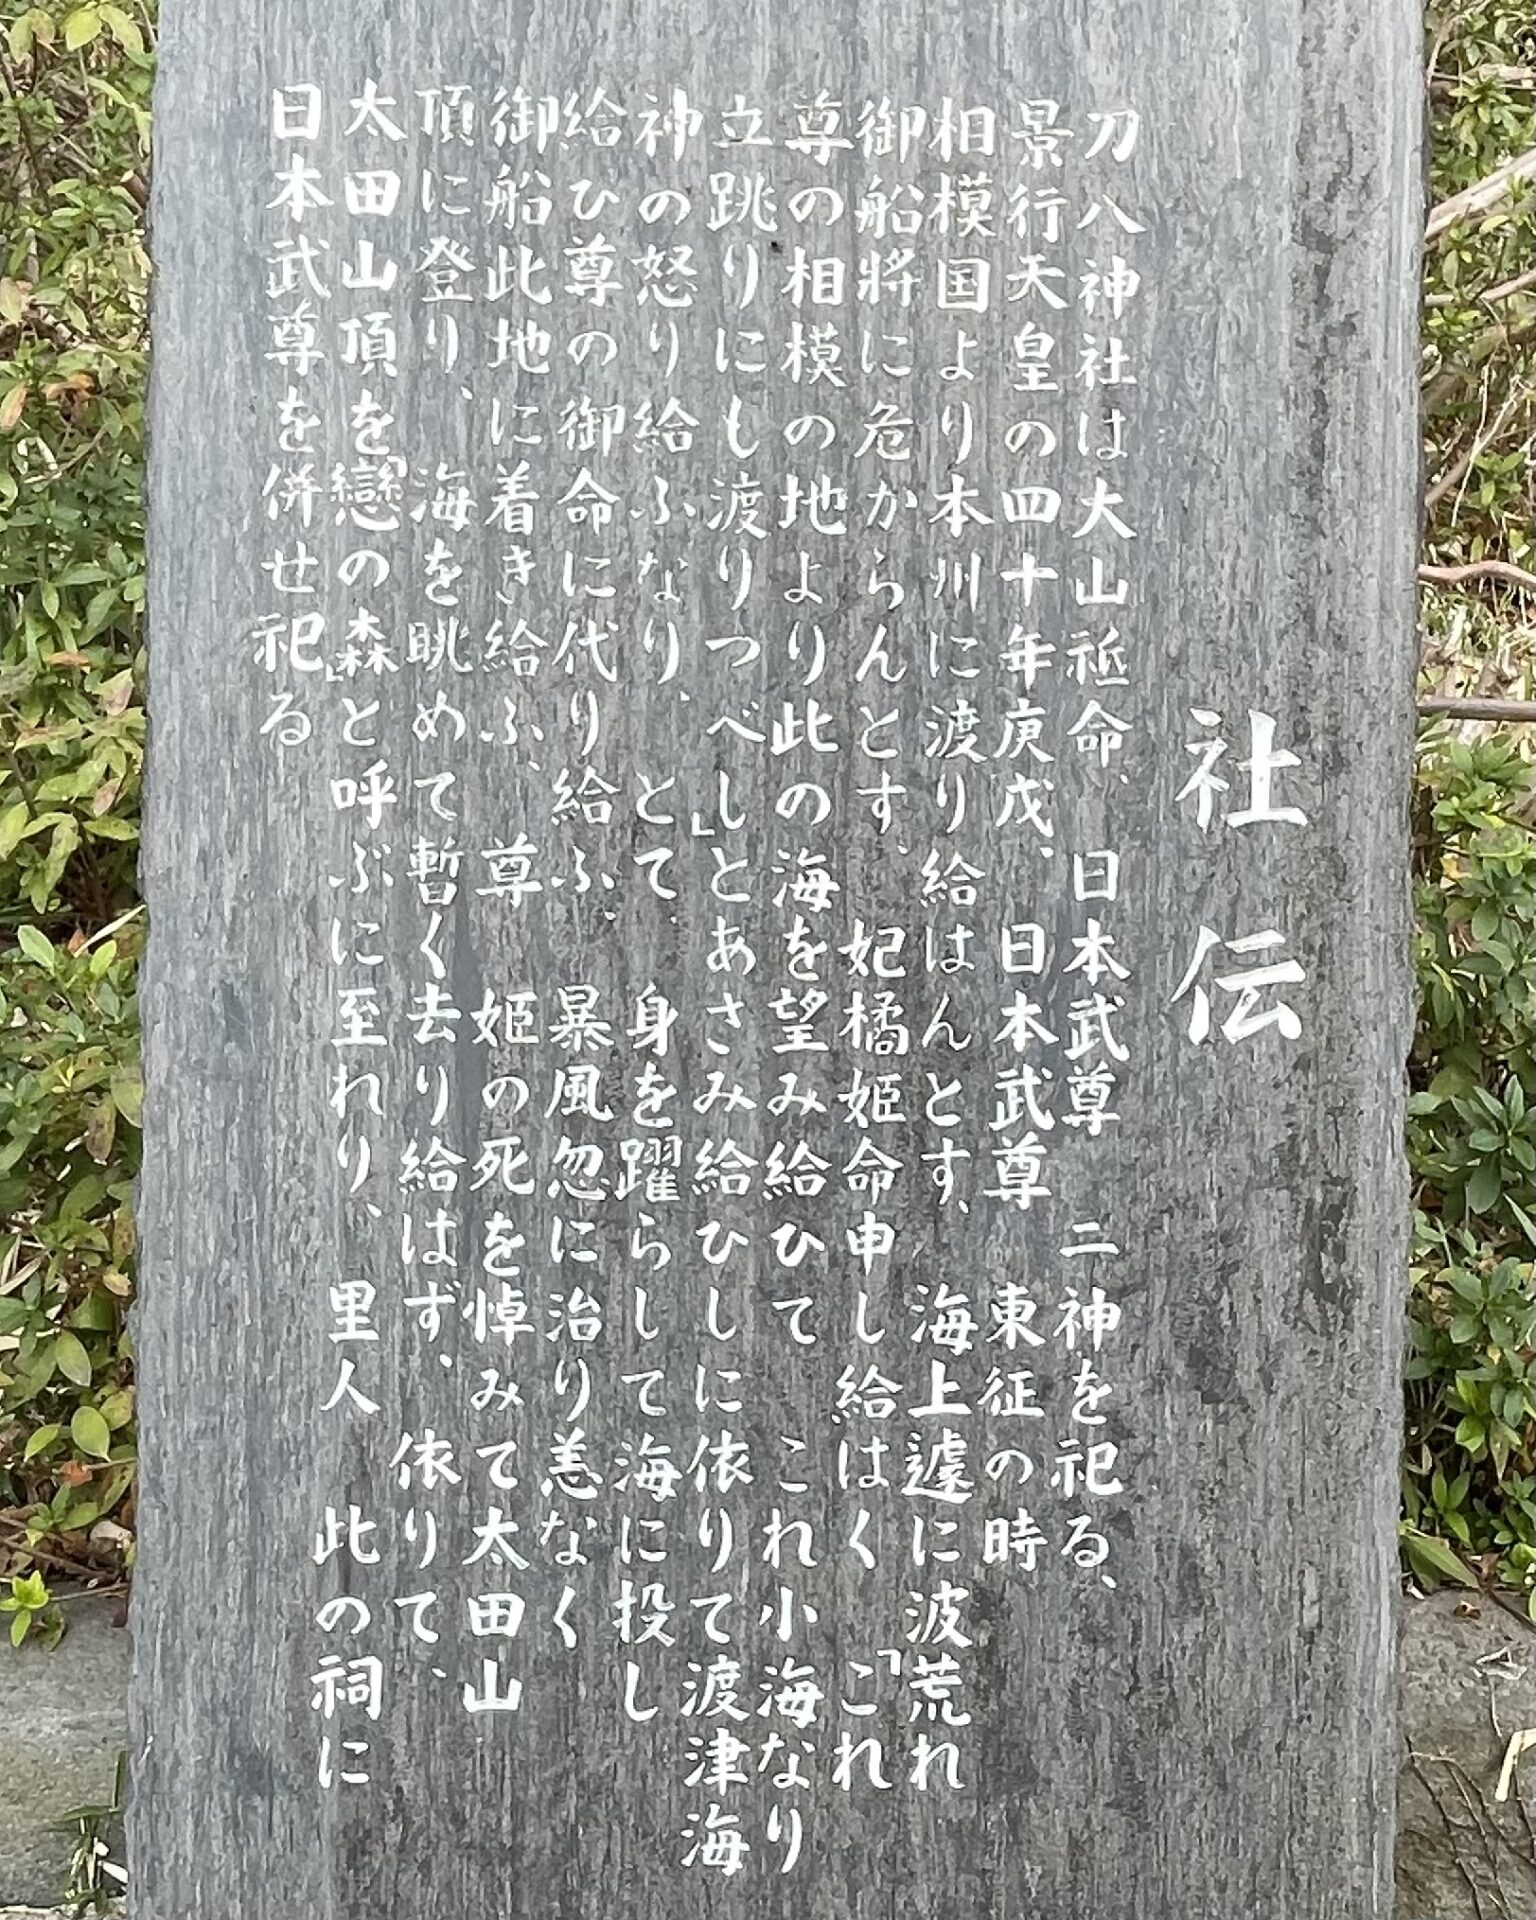 社伝
刀八神社は大山祗命、日本武尊 二神を祀る、
景行天皇の四十年庚戌、日本武尊 東征の時
相模国より本州に渡り給はんとす、海上遽に波荒れ
御船將に危からんとす、妃橘姫命申し給はく「これ
尊の相模の地より此の海を望み給ひて これ小海なり
立跳りにし渡りつべし」とあさみ給ひしに依りて渡津海
神の怒り給ふなり、とて 身を躍らして海に投し
給ひ尊の御命に代り給ふ、暴風忽に治り恙なく
御船此地に着き給ふ、尊 姫の死を悼みて太田山
頂に登り、海を眺めて暫く去り給はず、依りて、
太田山頂を「戀の森」と呼ぶに至れり、里人 此の祠に
日本武尊を併せ祀る